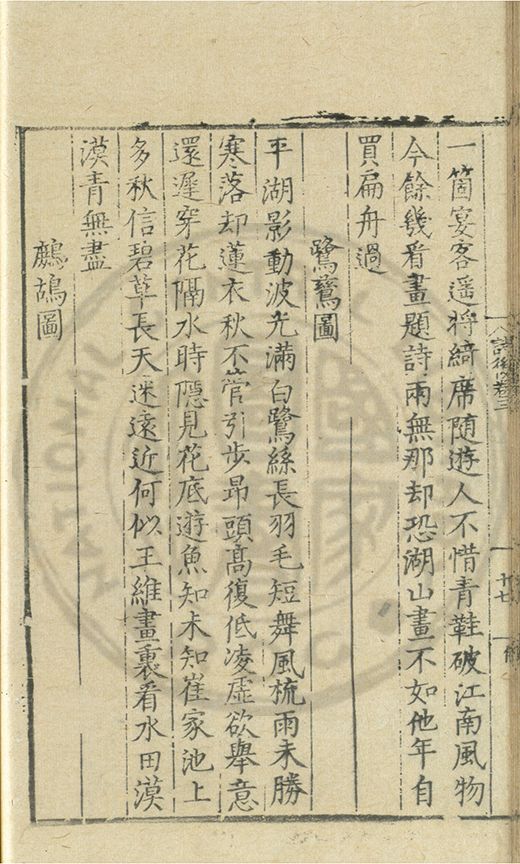 一箇宴客遥將綺席隨遊人不惜青鞋破江南風物
今餘幾看畫題詩兩無那却恐湖山畫不如他年自
買扁舟過
鷺鷥圖
平湖影動波光滿白鷺絲長羽毛短舞風梳雨未勝
寒落却蓮衣秋不管引步昂頭高復低凌虛欲舉意
還遲穿花隔水時隱見花底遊魚知未知崔家池上
多秋信碧草長天迷遠近何似王維畫裏看水田漠
漠青無盡
鷓鴣圖
詩後卷三
十七